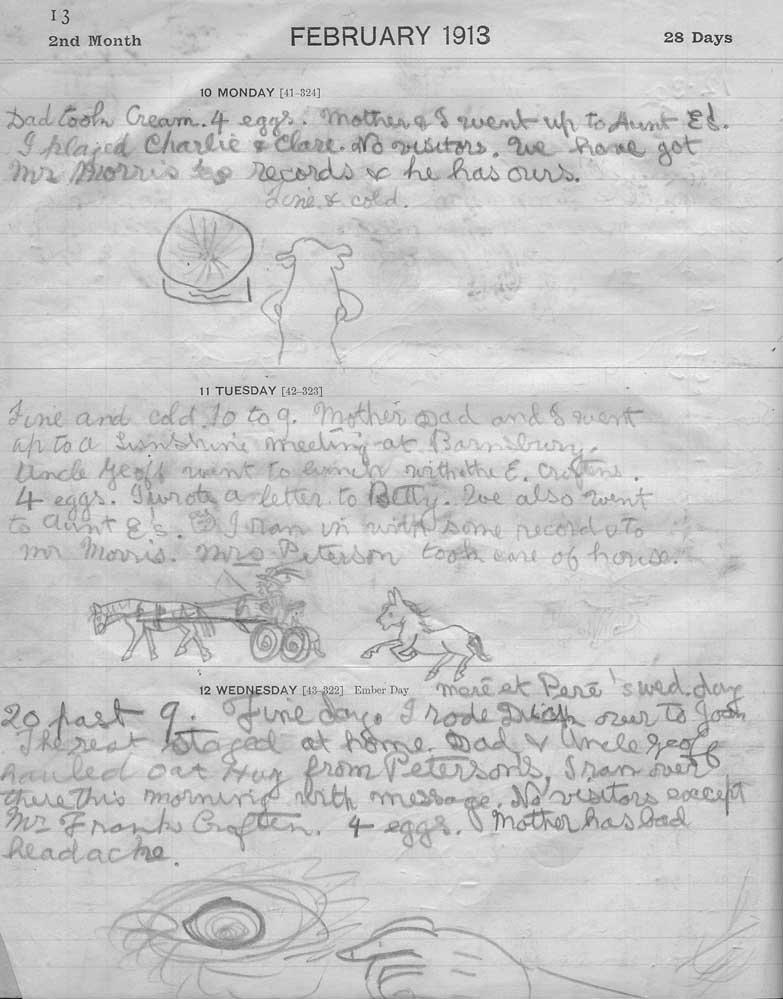 13
2nd Month FEBRUARY 1913 28 Days
10 MONDAY [41-324]
Dad took Cream. 4 eggs. Mother & I went up to Aunt E's.
I played Charlie & Clare. No visitors. We have got
Mr Morris's records & he has ours.
Fine & cold.
11 TUESDAY [42-323]
Fine and cold. 10 to 9. Mother Dad and I went
up to a Sunshine meeting at Barnsbury.
Uncle Geoff went to with the E. Croftens.
4 eggs. I wrote a letter to Betty. We also went
to Aunt E's. I ran in with some records to
Mr Morris. Mrs Peterson took care of house.
12 WEDNESDAY [43-322] Ember Day
Merè et Perè's wed. day
20 past 9. Fine day. I rode over to
The rest stayed at home. Dad & Uncle Geoff
hauled out Hay from Petersons, I ran over
there this morning with message. No visitors except
Mr Frank Croften. 4 eggs. Mother has bad
headache.